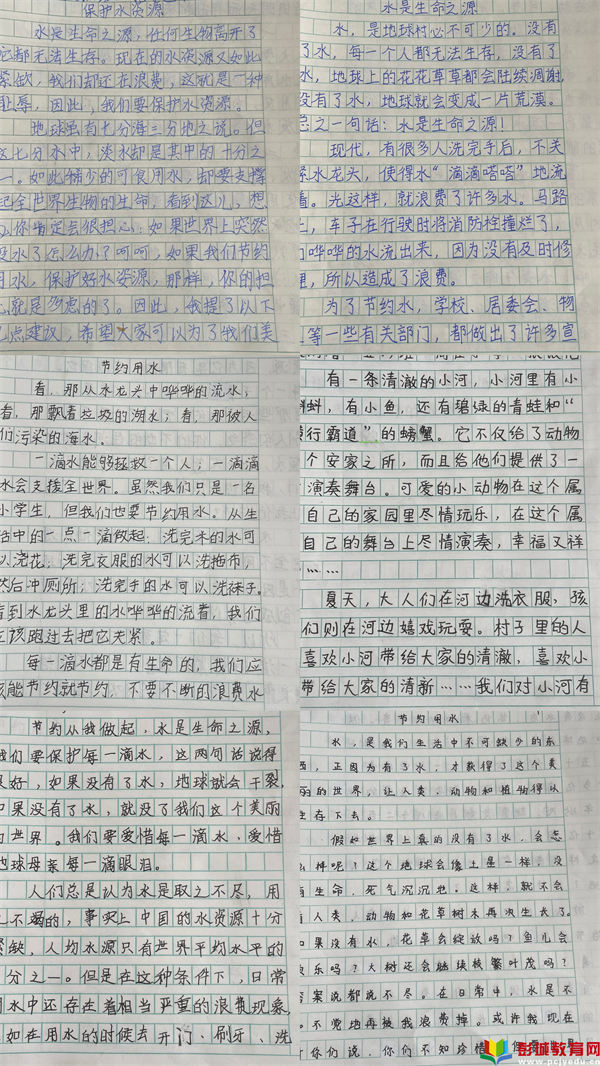 保护水资源
水是生命之源,任何生物离开了
它都无法生存。现在的水资源又如此
紧缺,我们却还在浪费,这就是一种
耻辱,因此,我们要保护水资源。
地球虽有七分海三分地之说。但
这七分水中,淡水却是其中的十分之
一。如此稀少的可食用水,却要支撑
起全世界生物的生命,看到这儿,想
必你肯定会很担心:如果世界上突然
没水了怎么办?呵呵,如果我们节约
用水,保护好水资源,那样,你的担
心就是多虑的了。因此,我提了以下
几点建议,希望大家可以为了我们美
水是生命之源
水,是地球村必不可少的。没有
了水,每一个人都无法生存,没有了
水,地球上的花花草草都会陆续凋谢,
没有了水,地球就会变成一片荒漠。
总之一句话:水是生命之源!
现代,有很多人洗完手后,不关
紧水龙头,使得水“滴滴嗒嗒”地流
着。光这样,就浪费了许多水。马路
上,车子在行驶时将消防栓撞烂了,
们哗哗的水流出来,因为没有及时修
理,所以造成了浪费。
为了节约水,学校、居委会、物
业等一些有关部门,都做出了许多宣
节约用水
看,那从水龙头中哗哗的流水;
看,那飘着垃圾的湖水;看,那被人
们污染的海水。
一滴水能够拯救一个人;一滴滴
水会支援全世界。虽然我们只是一名
小学生,但我们也要节约用水。从生
活中的一点一滴做起:洗完米的水可
以浇花;洗完衣服的水可以洗拖布,
然后冲厕所;洗完手的水可以洗袜子。
看到水龙头里的水哗哗的流着,我们
应该跑过去把它关紧。
每一滴水都是有生命的,我们应
该能节约就节约,不要不断的浪费水
有一条清澈的小河,小河里有小
蝌蚪,有小鱼,还有碧绿的青蛙和“
横行霸道”的螃蟹。它不仅给了动物
个安家之所,而且给他们提供了一
演奏舞台。可爱的小动物在这个属
自己的家园里尽情玩乐,在这个属
自己的舞台上尽情演奏,幸福又祥
……
夏天,大人们在河边洗衣服,孩
们则在河边嬉戏玩耍。村子里的人
喜欢小河带给大家的清澈,喜欢小
带给大家的清新……我们对小河有
节约从我做起,水是生命之源,
我们要保护每一滴水,这两句话说得
很好,如果没有了水,地球就会干裂,
如果没有了水,就没了我们这个美丽
的世界。我们要爱惜每一滴水、爱惜
地球母亲每一滴眼泪。
人们总是认为水是取之不尽,用
之不竭的,事实上中国的水资源十分
紧缺,人均水源只有世界平均水平的
分之一。但是在这种条件下,日常
用水中还存在着相当严重的浪费现象,
如在用水的时候去开门、刷牙、洗
节约用水
水,是我们生活中不可缺少的东
西,正因为有了水,才获得了这个美
丽的世界,让人类、动物和植物得以
生存下去。
假如世界上真的没有了水,会怎
么样呢?这个地球会像土星一样,没
有生命,死气沉沉地。这样,就不会
有人类,动物和花草树木再次生长了。
如果没有水,花草会绽放吗?鱼儿会
快乐吗?大树还会继续枝繁叶茂吗?
答案说都说不尽。在日常中,水是不
不觉地再被我浪费掉。或许我现在
对你们说,你们不知珍惜
彭城教育网
www.pcjyedu.cn